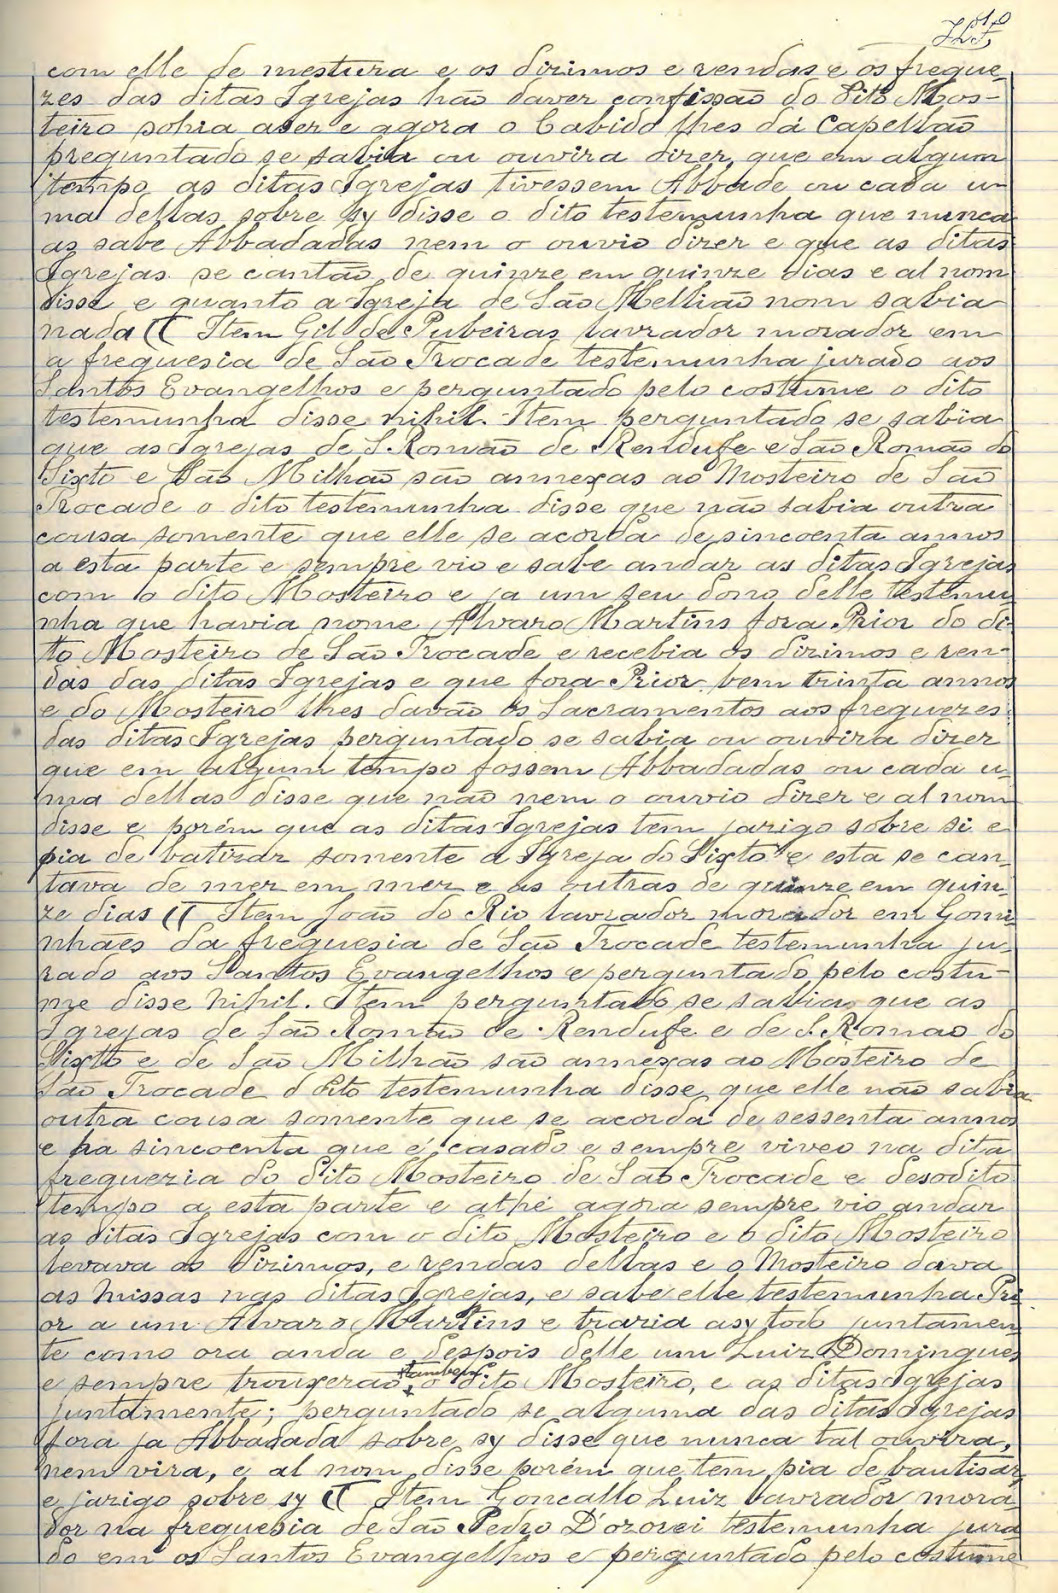 com elle de mestura e os dizimos e rendas e os fregue-
zes das ditas Igrejas hão daver confissão do dito Mos-
teiro sohia aser e agora o Cabido lhes dá Capellão
preguntado se sabia ou ouvira dizer, que em algum
tempo as ditas Igrejas tivessem Abbade ou cada u-
ma dellas sobre sy disse o dito testemunha que nunca
as sabe Abbadadas nem o ouvio dizer e que as ditas
Igrejas se cantão de quinze em quinze dias e al nom
disse e quanto a Igreja de São Mellião nom sabia
nada (( Item Gil de Pubeiras lavrador morador em
a freguesia de São Trocade testemunha jurado aos
Santos Evangelhos e perguntado pelo costume o dito
testemunha disse nihil. Item perguntado se sabia
que as Igrejas de S. Romão de Rendufe e São Romão do
Sixto e São Milhão são annexas ao Mosteiro de São
Trocade o dito testemunha disse que não sabia outra
cousa somente que elle se acorda de sincoenta annos
a esta parte e sempre vio e sabe andar as ditas Igrejas
com o dito Mosteiro e ja um seu dono delle testemu
nha que havia nome Alvaro Martins fora Prior do di-
to Mosteiro de São Trocade e recebia os dizimos e ren-
das das ditas Igrejas e que fora Prior bem trinta annos
e do Mosteiro lhes davão os Sacramentos aos freguezes
das ditas Igrejas perguntado se sabia ou ouvira dizer
que em algum tempo fossem Abbadadas ou cada u-
ma dellas disse que não nem o ouvio dizer e al nom
disse e porém que as ditas Igrejas tem jazigo sobre si e
pia de batizar somente a Igreja do Sixto e esta se can-
tava de mez em mez e as outras de quinze em quin-
ze dias (( Item João do Rio lavrador morador em Gomi-
nhaes da freguesia de São Trocade testemunha ju-
rado aos Santos Evangelhos e perguntado pelo costu-
me disse nihil. Item perguntado se sabia que as
Igrejas de São Romão de Rendufe e de S. Romao do
Sixto e de São Milhão são annexas ao Mosteiro de
São Trocade o dito testemunha disse que elle não sabia
outra cousa somente que se acorda de sessenta annos
e ha sincoenta que é casado e sempre viveo na dita
freguezia do dito Mosteiro de São Trocade e desodito
tempo a esta parte e athé agora sempre vio andar
as ditas Igrejas com o dito Mosteiro e o dito Mosteiro
levava os dizimos, e rendas dellas e o Mosteiro dava
as missas nas ditas Igrejas, e sabe elle testemunha Pri
or a um Alvaro Martins e trazia asy todo juntamen-
te como ora anda e despois delle um Luiz Domingues
e sempre trouxerão tambem o dito Mosteiro, e as ditas Igrejas
juntamente; perguntado se alguma das ditas Igrejas
fora ja Abbadada sobre sy disse que nunca tal ouvira,
nem vira, e al nom disse porém que tem pia de bautisar,
e jazigo sobre sy (( Item Goncallo Luiz lavrador mora
dor na freguesia de São Pedro D'ozorei testemunha jura
do em os Santos Evangelhos e perguntado pelo costume